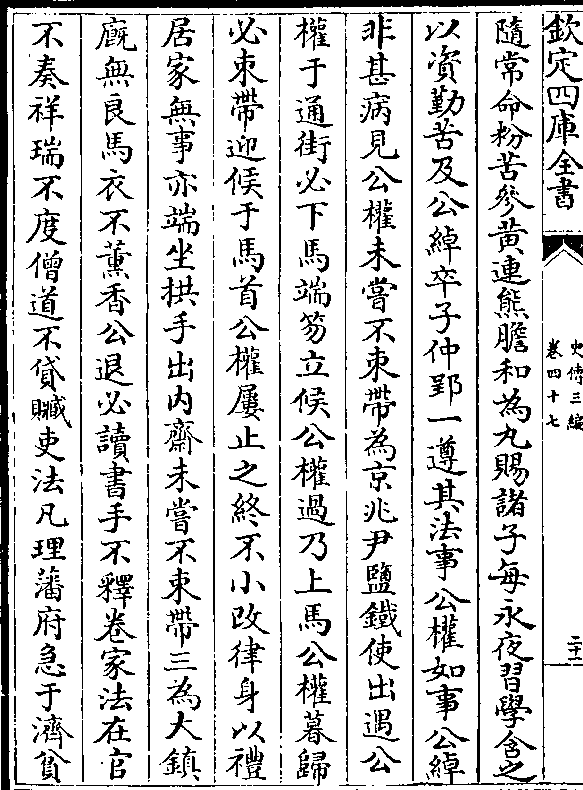 欽定四庫全書
史傳三編
卷四十七
二十一
隨常命粉苦參黃連熊膽和為丸賜諸子每永夜習學含之
以資勤苦及公綽卒子仲郢一遵其法事公權如事公綽
非甚病見公權未嘗不束帶為京兆尹鹽鐵使出遇公
權于通街必下馬端笏立候公權過乃上馬公權暮歸
必束帶迎候于馬首公權屢止之終不小改律身以禮
居家無事亦端坐拱手出内齋未嘗不束帶三為大鎮
廐無良馬衣不薰香公退必讀書手不釋卷家法在官
不奏祥瑞不度僧道不貸贓吏法凡理藩府急于濟貧